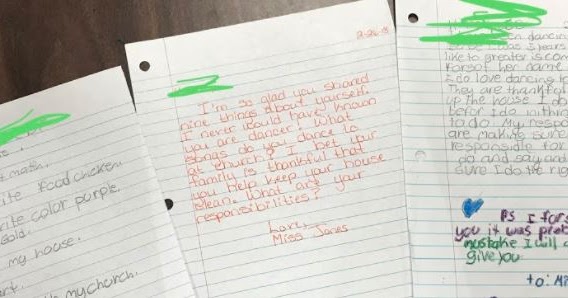 t math.
ite food chicken
rite color purple
Gold.
my house.
art.
th my church.
2-26-8
I'm so glad you shared
nine things about yourself.
I never would have known
you are dancer! What
songs do you dance to
at church? I bet your
family is thankful that
you help keep your house
clean. What are your
responsibilities?
Love,
Miss Jones
en dancin
I was 2 years
like to greater is com
forgot her name
I do love dancing to
They are thankful
up the house I do
befor I do in thin
to do. My respo
are making sure
responsible for
do and say and
sure I do the rig
PS I for
you it was prob
mustake I will
give you
to: Mi